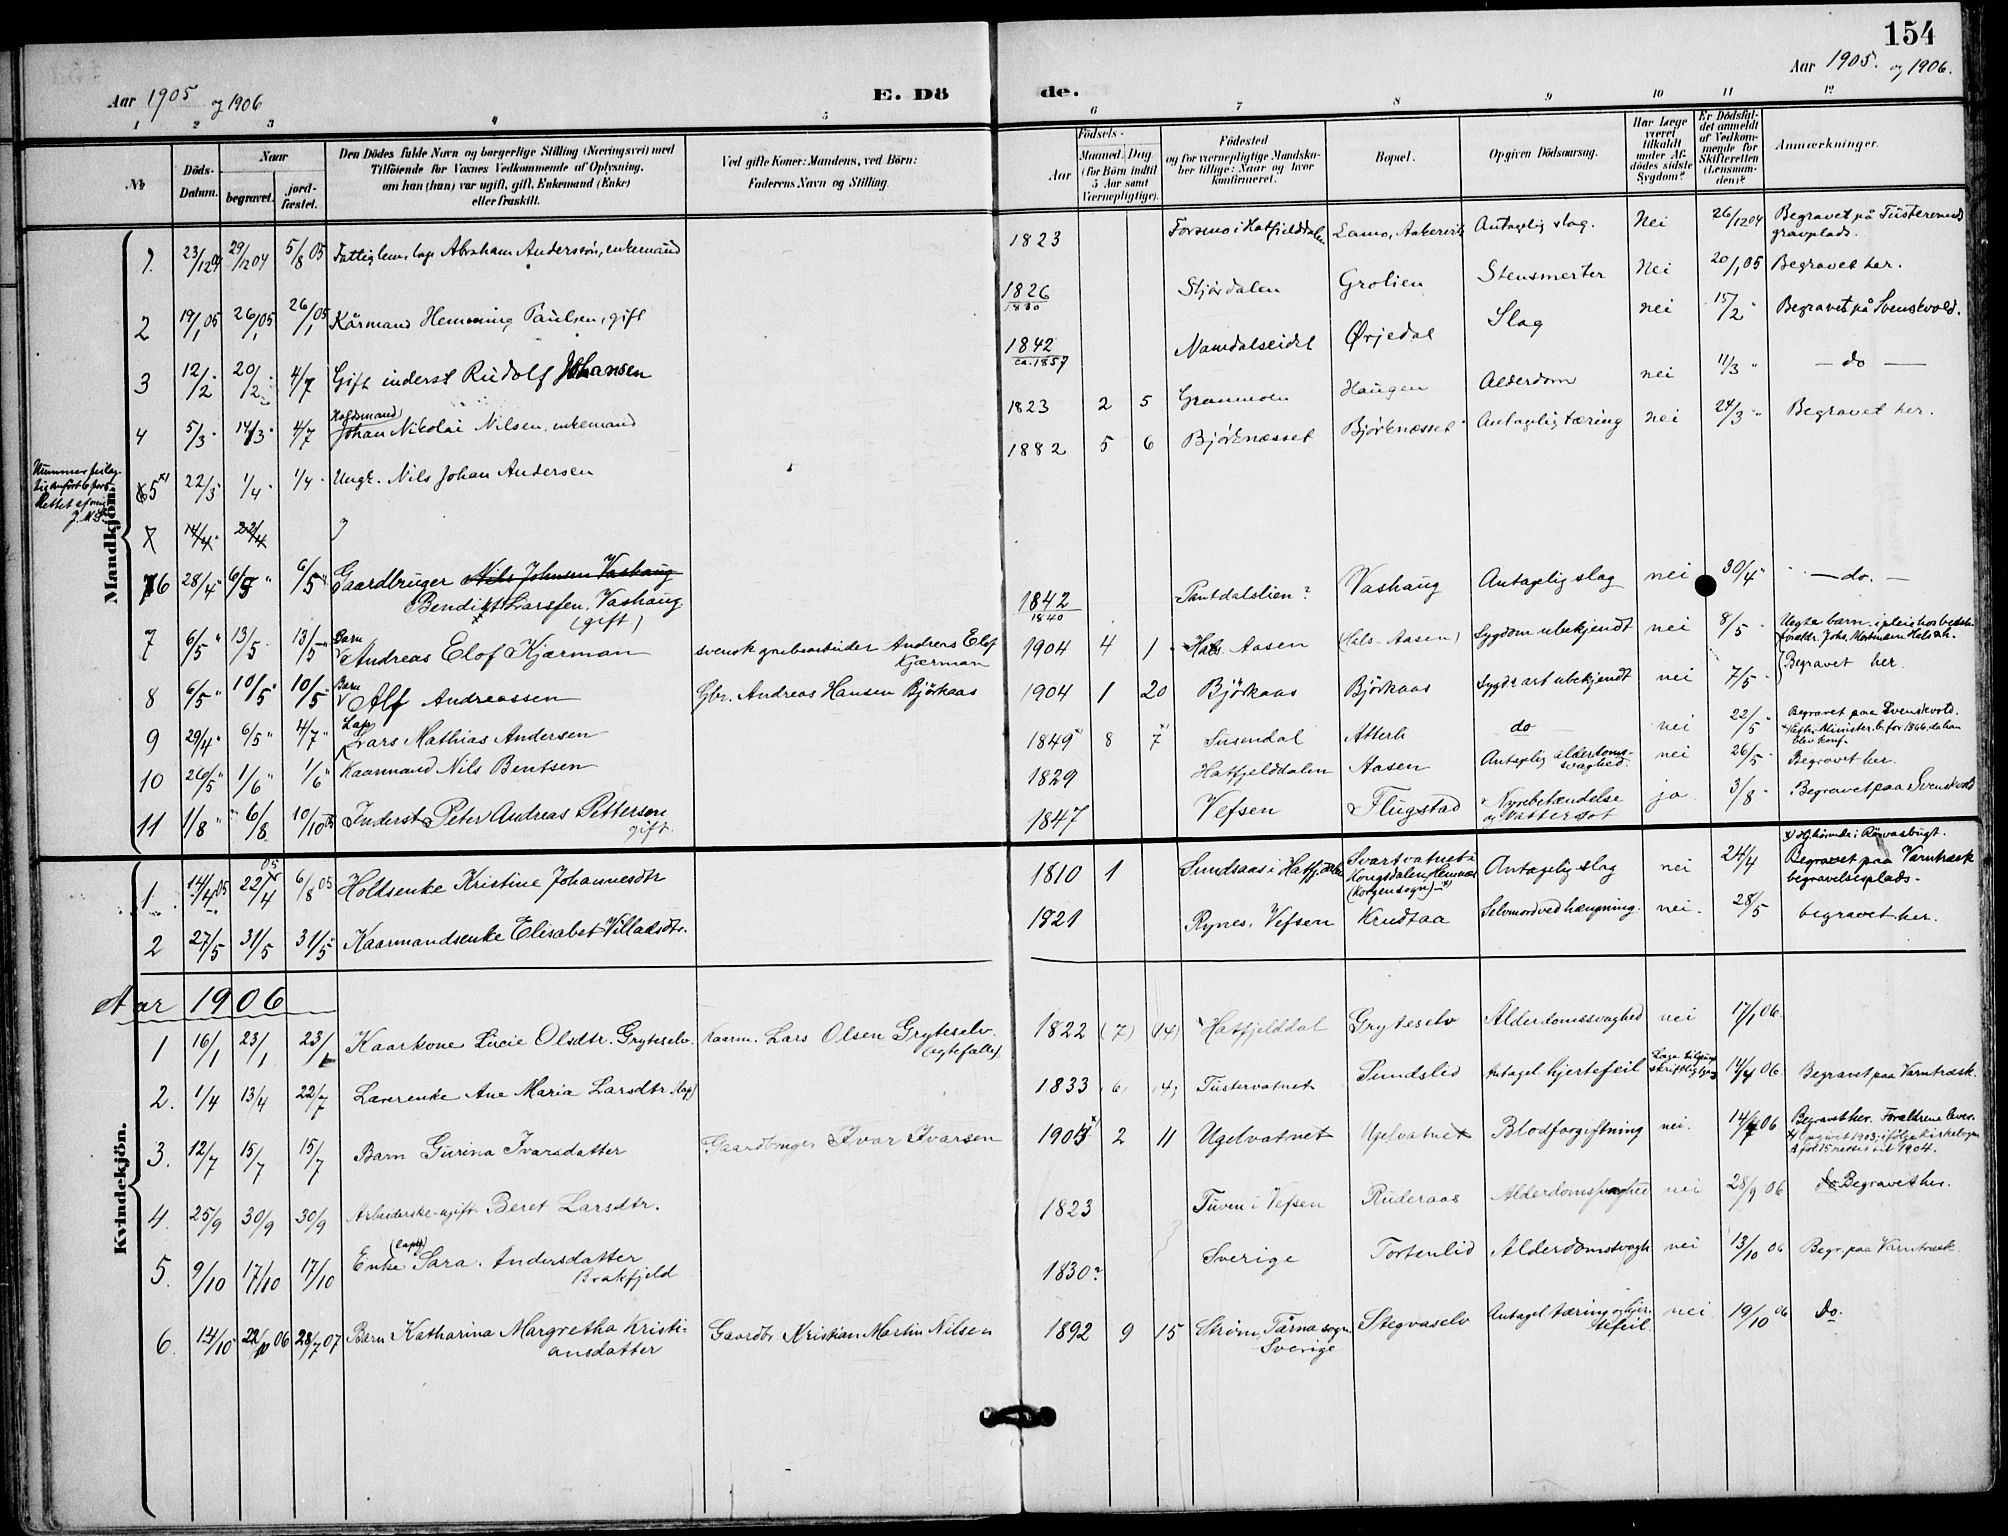 154
Aar 1905 og 1906
E. Dö
de.
Aar 1905. og 1906.
1 2 3 4 5 6 7 8 9 10 11 12
No
Döds-
Datum.
Naar
begravet.
jord-
fæstet.
Den Dödes fulde Navn og borgerlige Stilling (Næringsvei) med
Tilföiende for Voxnes Vedkommende af Oplysning,
om han (hun) var ugift, gift, Enkemand (Enke)
eller fraskilt.
Ved gifte Koner: Mandens, ved Börn:
Faderens Navn og Stilling.
Födsels-
Aar
Maaned. Dag.
(for Börn indtil
5 Aar samt
Værnepligtige).
Födested
og for værnepligtige Mandska-
ber tillige: Naar og hvor
konfirmeret.
Bopæl.
Opgiven Dödsaarsag.
Har Læge
været
tilkaldt
under Af-
dödes sidste
Sygdom?
Er Dödsfal-
det anmeldt
af Vedkom-
mende for
Skifteretten
(Lensman-
den)?
Anmærkninger.
Mandkjön.
1. 23/12 04 29/12 04 5/8 05 Fattiglem, lap Abraham Anderssön, enkemand 1823 Forsmo i Hatfjelddalen Antagelig slag. Nei 26/12 04 Begravet på Tusterenæs
gravplads.
2 19/1 05 26/1 05 26/1 05 Kårmand Hemming Paulsen, gift 1826
1830 Stjördalen Grolien Stensmerter Nei 20/1 05 Begravet her.
3 12/2 20/2 4/7 Gift inderst Rudolf Johansen 1842
ca. 1857 Namdalseidet Ørjedal Slag nei 15/2 Begravet på Svenskvold.
4 5/3 14/3 4/7 Holdsmand
Johan Nikolai Nilsen, enkemand 1823 2 5 Granmoen Haugen Alderdom nei 11/3 — do —
5 22/3 1/4 1/4 Ungk. Nils Johan Andersen 1882 5 6 Björknæsset Björknæsset Antagelig tæring nei 24/3 Begravet her.
14/4 22/4
6 28/4 6/5 6/5 Gaardbruger Nils Johnsen Vashaug
Bendikt Larssen, Vashaug
(gift) 1842
1840 Vashaug Antagelig slag nei 30/4 — do. —
7 6/5 13/5 13/5 Barn
Andreas Elof Kjærman svensk grubearbeider Andreas Elof
Kjærman 1904 4 1 Hals Aasen (Hals-Aasen) Sygdom ubekjendt nei 8/5 Uegte barn
Begravet her.
8 6/5 10/5 10/5 Barn
Alf Andreassen Gbr. Andreas Hansen Björkaas 1904 1 20 Björkaas Björkaas Sygd: art ubekjendt nei 7/5
9 29/4 6/5 4/7 Lap
Lars Mathias Andersen 1849 8 7 Susendal Atterli do nei 22/5 Begravet paa Svenskvold.
10 26/5 1/6 1/6 Kaarmand Nils Bentsen 1829 Hatfjelddalen Aasen Antagelig alderdoms-
svaghed. nei 26/5 Begravet her.
11 1/8 6/8 10/10 05 Inderst Peter Andreas Pettersen
gift. 1847 Vefsen Flugstad Nyrebetændelse
og Vattersot ja 3/8 Begravet paa Svenskvold
Kvindekjön.
1. 14/4 05 22/4 05 6/8 05 Holdsenke Kristine Johannesdtr 1810 1 Sundsaas i Hatfjeld. Svartvatnet
Kongsdalen, Hemnæs
(Korgen sogn) Antagelig slag nei 24/4 Begravet paa Varntræsk
begravelsesplads.
2 27/5 31/5 31/5 Kaarmandsenke Elisabet Villadsdtr. 1821 Rynes, Vefsen Krudtaa Selvmord ved hængning. nei. 28/5 begravet her.
Aar 1906
1 16/1 23/1 23/1 Kaarkone Lucie Olsdtr. Gryteselv. Kaarm. Lars Olsen Gryteselv.
(egtefælle) 1822 (7) (14) Hatfjelddal Gryteselv Alderdomssvaghed nei 17/1 06.
2. 1/4 13/4 22/7 Ane Maria Larsdtr. (lap) 1833 (6) (4) Tustervatnet Sundslid Antagel. hjertefeil 14/4 06 Begravet paa Varntræsk.
3. 12/7 15/7 15/7 Barn Gurina Ivarsdatter Gaardbruger Ivar Ivarsen 1903 2 11 Ugelvatnet Ugelvatnet Blodforgiftning nei. 14/7 06 Begravet her. Forældrene lever.
4. 25/9 30/9 30/9 Arbeiderske-ugift Beret Larsdtr. 1823 Tuven i Vefsen Ruderaas Alderdomssvaghed nei 28/9 06 Begravet her.
5. 9/10 17/10 17/10 Enke (lap) Sara Andersdatter
Brakfjeld 1830? Sverige Tortenlid Alderdomssvagh nei 13/10 06 Begr. paa Varntræsk
6. 14/10 22/10 06 28/7 07 Barn Katharina Margretha Kristi-
ansdatter Gaardbr Kristian Martin Nilsen 1892 9 15 Ström, Tärna sogn
Sverige Stegvaselv Antagel tæring og hjer-
tefeil nei 19/10 06 Do.